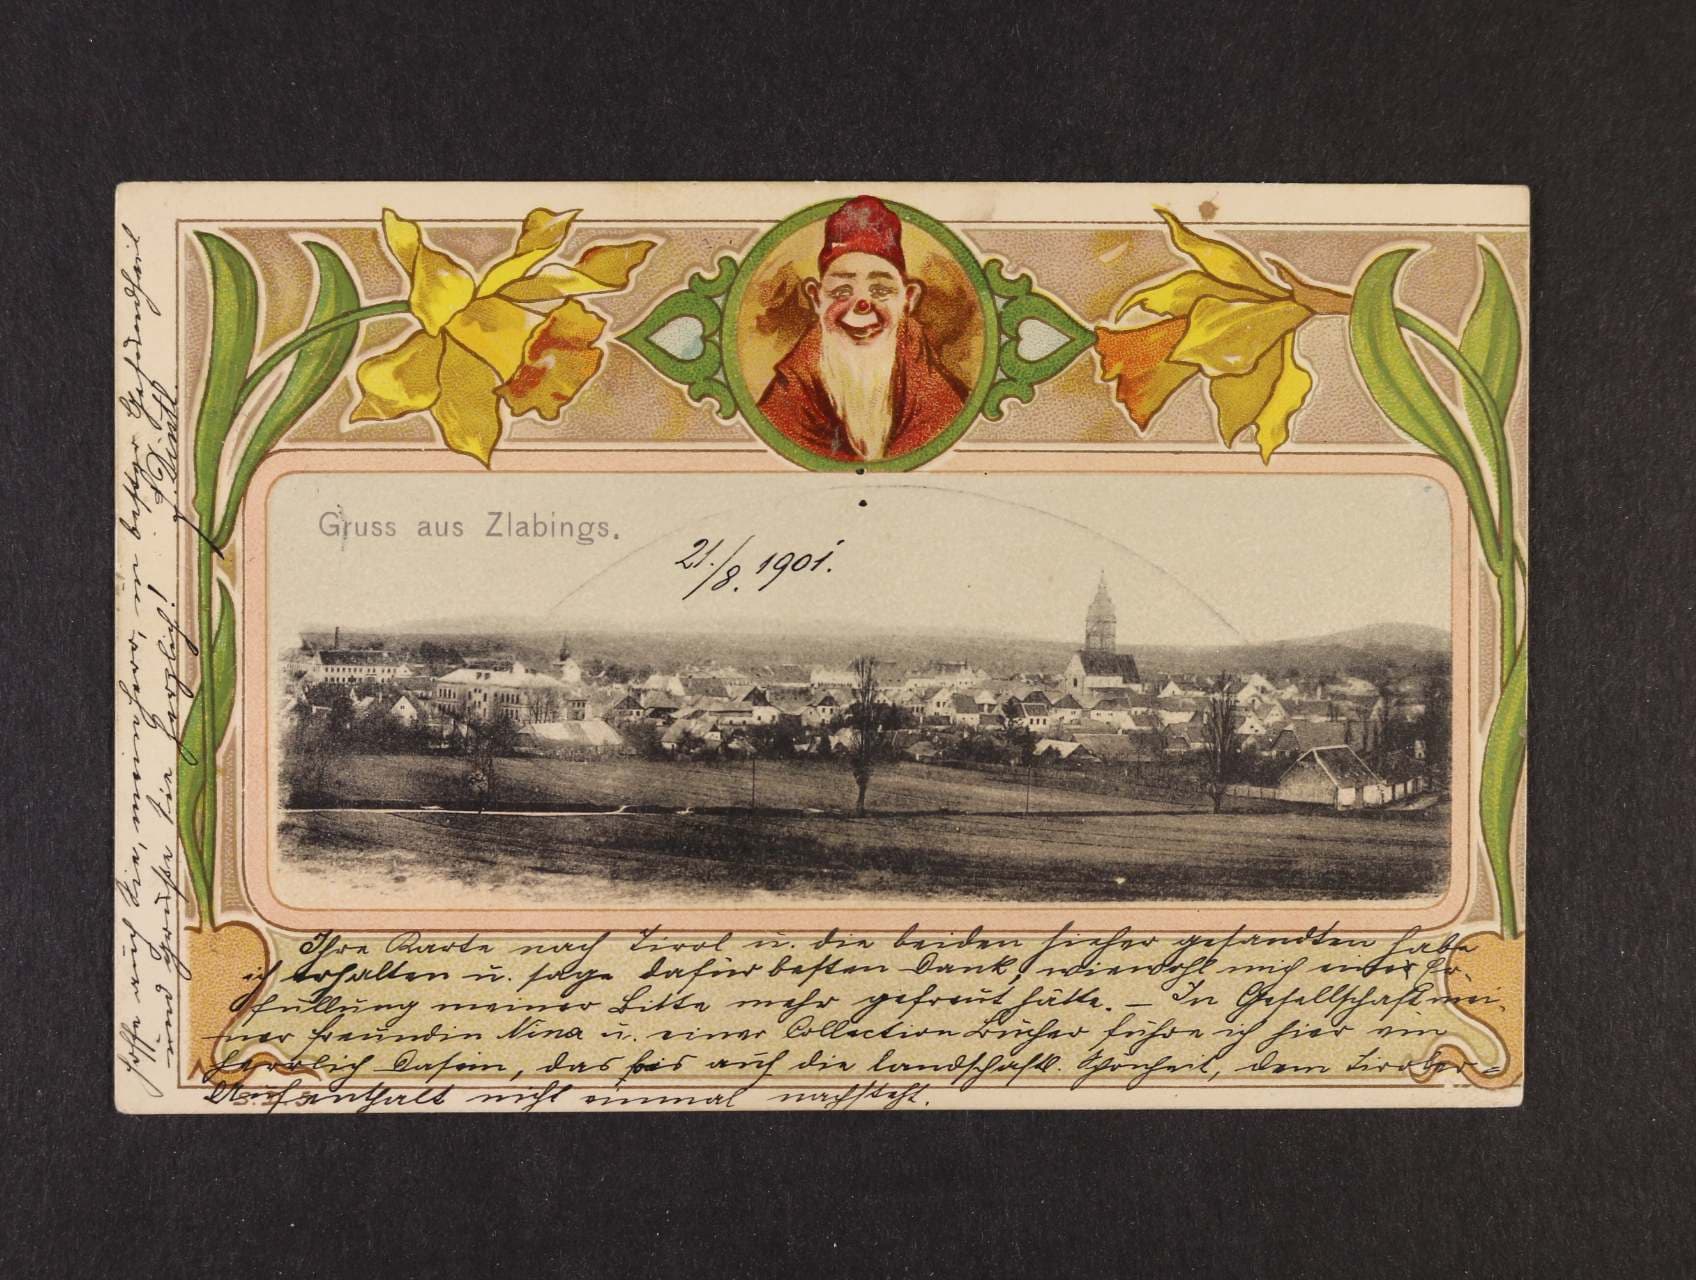 Gruss aus Zlabings.
21./8. 1901.
Ihre Karte nach Tirol u. die beiden hieher gesandten habe
ich erhalten u. sage dafür besten Dank, wiewohl mich eine Er-
füllung meiner Bitte mehr gefreut hätte. – In Gesellschaft mei-
ner Freundin Nina u. einer Collection Bücher führe ich hier ein
herrlich Dasein, das bis auf die landschaftl. Schönheit, dem Tiroler-
Aufenthalt nicht einmal nachsteht.
Hoffe auch Sie, wenn
und grüße Sie herzlich!